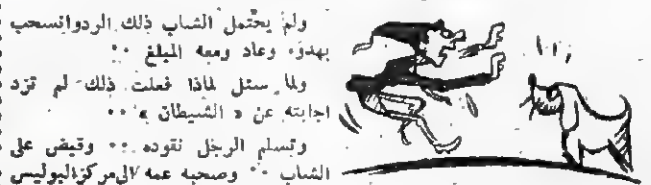 ولم يحتمل الشاب ذلك الردوانسحب
بهدوء وعاد ومعه المبلغ ..
ولما سئل لماذا فعلت ذلك لم تزد
اجابته عن « الشيطان » ..
وتسلم الرجل نقوده .. وقبض على
الشاب .. وصحبه عمه الى مركز البوليس